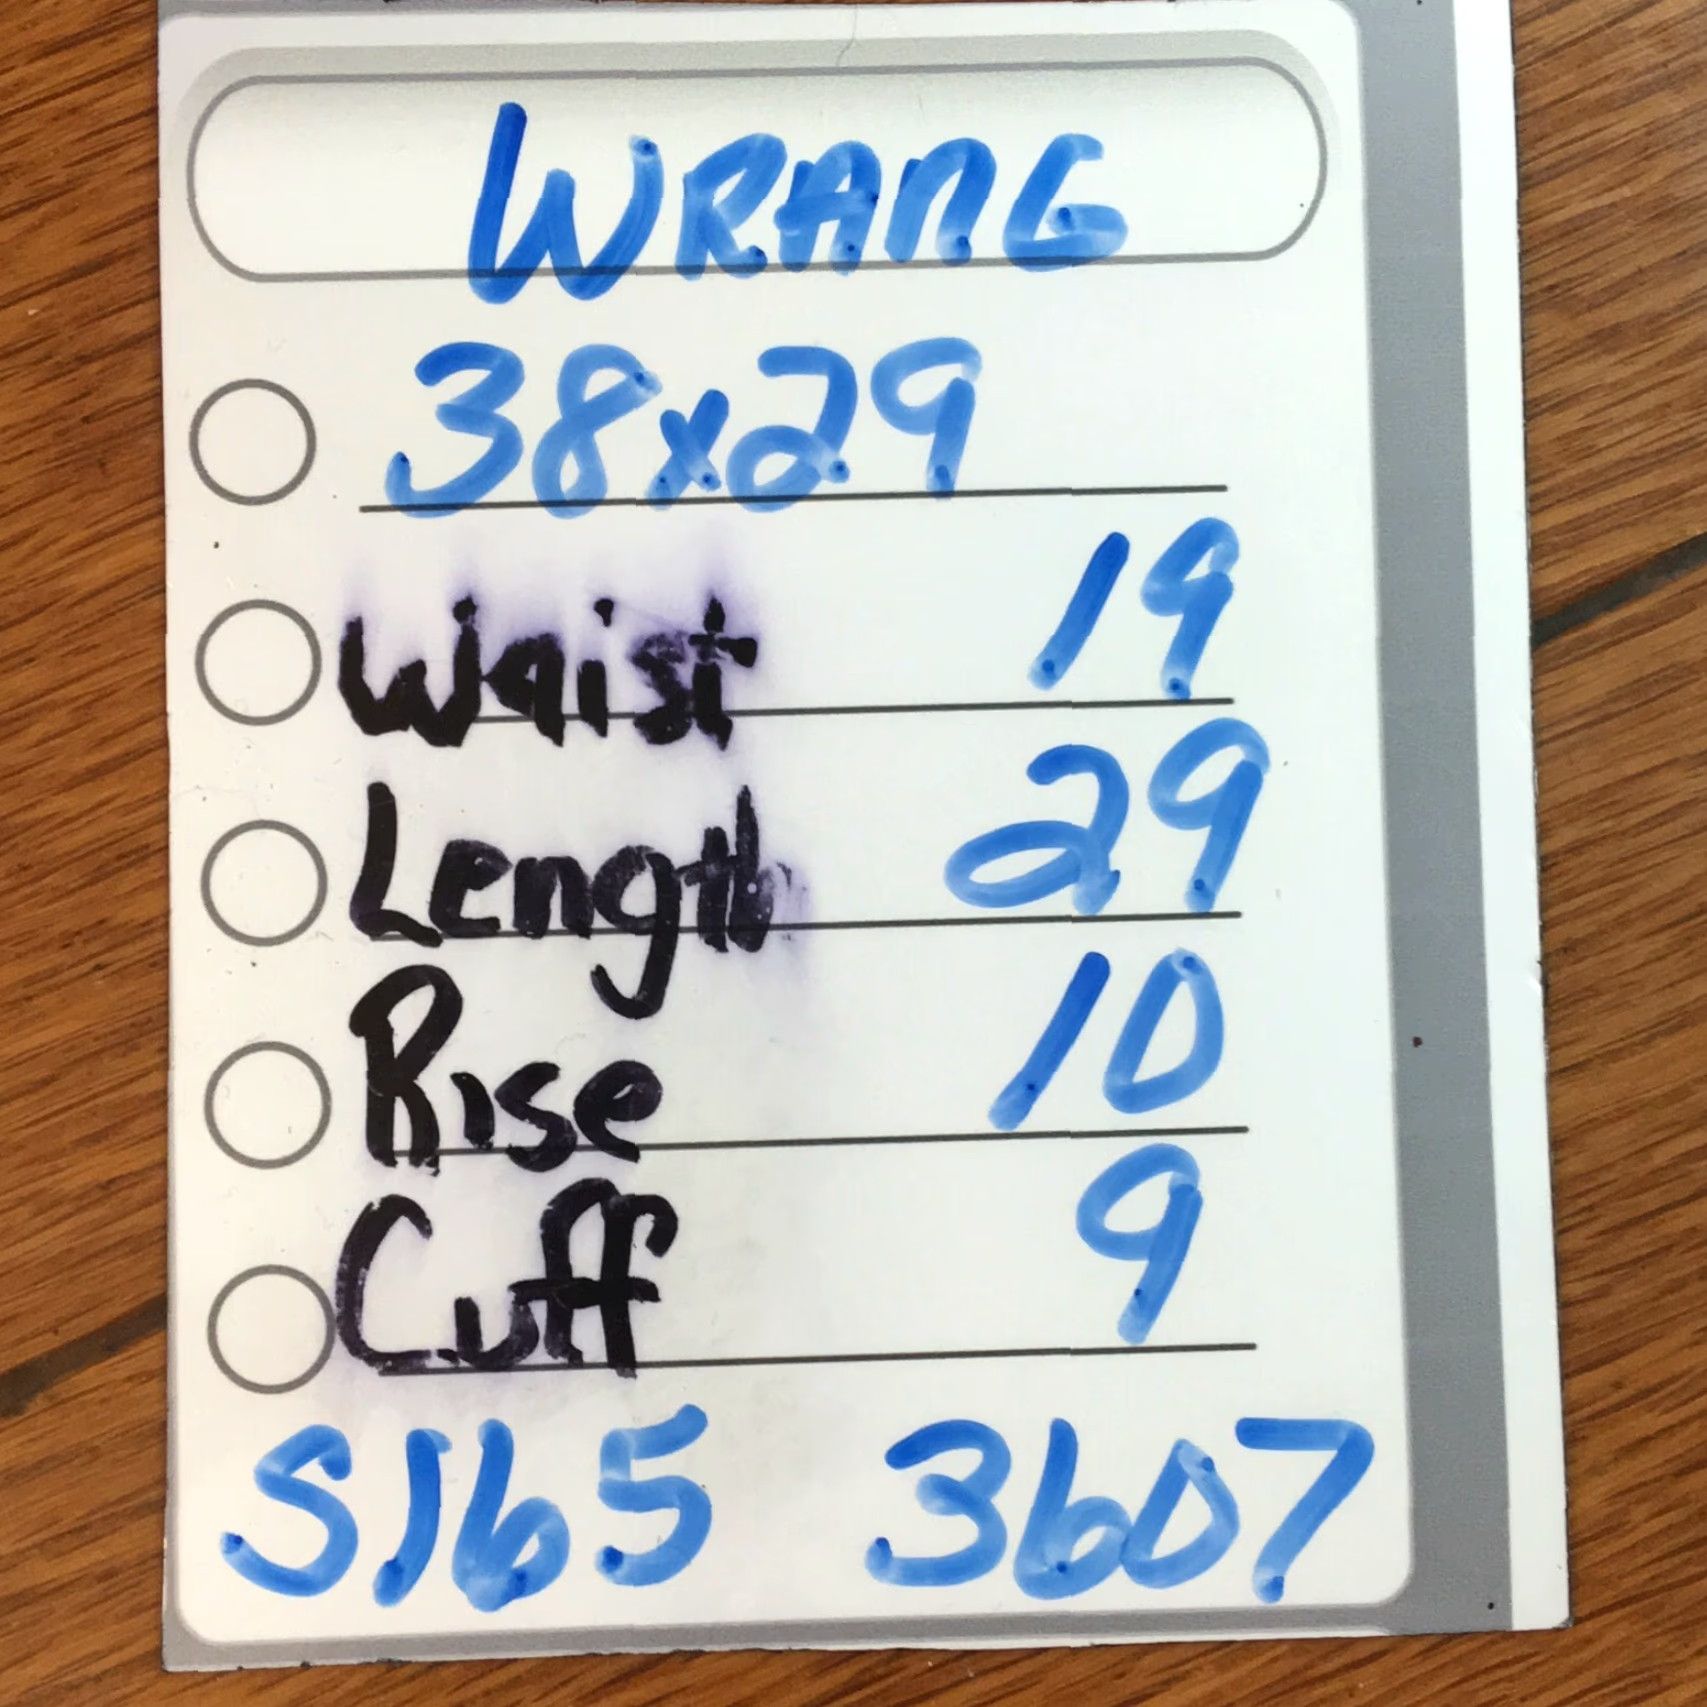 WRANG
38x29
Waist 19
Length 29
Rise 10
Cuff 9
S165 3607